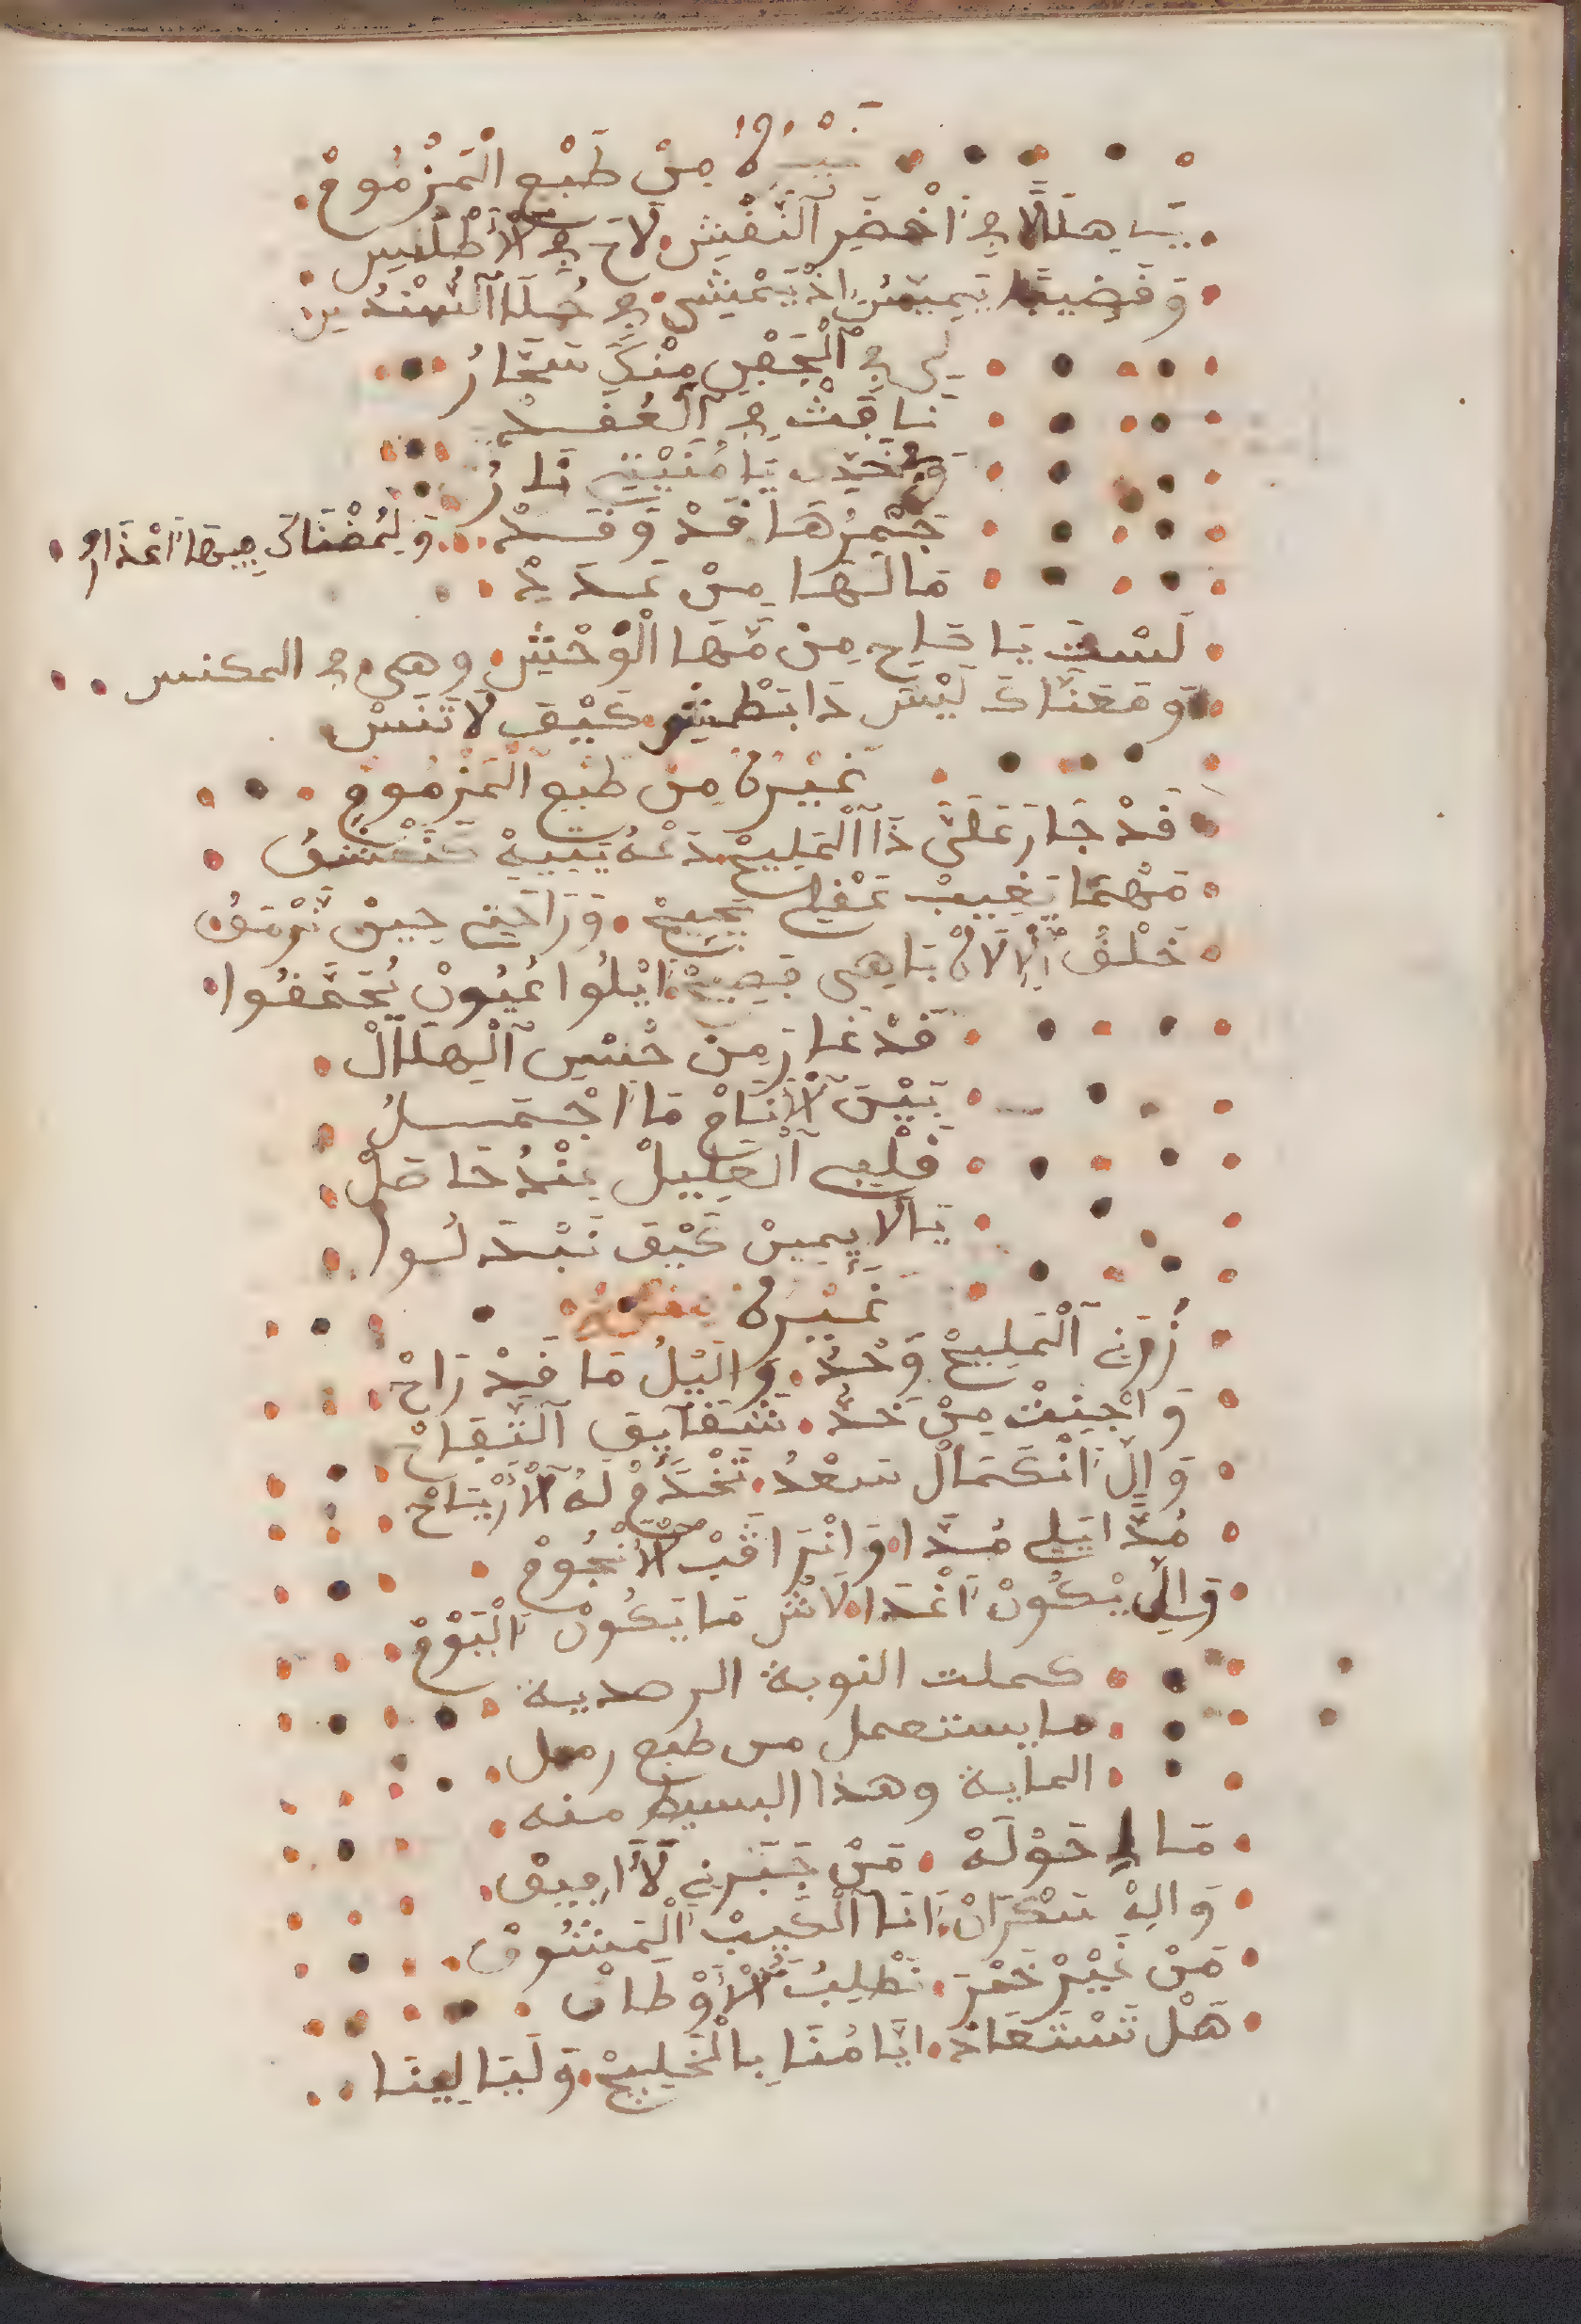 غَيْرُهُ مِنْ طَبْعِ الْمَزْمُومْ
يَا هِلَالًا فِي أَخْضَرِ النَّقْشِ لَاحَ فِي الْأَطْلَسِ
وَقَضِيبًا يَمِيسُ إِذْ يَمْشِي فِي حُلَلِ السُّنْدُسِ
لِي فِي الْجَفْنِ مِنْكَ سَحَّارُ
نَافِثْ فِي الْعُقَدْ
وَبِخَدِّ يَا مُنْيَتِي نَارُ
جَمْرُهَا قَدْ وَقَدْ وَلِمُضْنَاكَ فِيهَا أَعْذَارُ
مَا لَهَا مِنْ عَدَدْ
لَسْتَ يَا صَاحِ مِنْ مَهَا الْوَحْشِ وهي في المكنس
وَمَعَنَّاكَ لَيْسَ ذَا بَطْشِ كَيْفَ لَا تَنَسْ
غَيْرُهُ مِنْ طَبْعِ الْمَزْمُومِ
قَدْ جَارَ عَلَيَّ ذَا الْمَلِيحْ دَعْهُ يَتِيهْ نَعْشَقُ
مَهْمَا يَغِيبْ عَقْلِي يَجِيحْ وَرَاحَتِي حِينْ نَرْمَقُ
خَلْفُ الْإِلَاهْ بَاهِي فَصِيحْ ابْلُوا عُيُونْ يُحَقَّقُوا
قَدْ غَارَ مِنْ حُسْنِ الْهِلَالْ
بَيْنَ الْأَنَامْ مَا اجْمَلُ
قَلْبِي الْعَلِيلْ عِنْدُ حَاصَلْ
يَا لَايِمِينْ كَيْفَ نَبْدَلُوا
غَيْرُهُ
زُرَنِي الْمَلِيحْ وَحْدُ وَاللَّيْلُ مَا قَدْ رَاحْ
وَاجْنِيْتْ مِنْ خَدُّ شَقَايِقَ التُّفَّاحْ
وَالِّ انْكَمَالْ سَعْدُ تَخْدَمْ لُهُ الْأَرْيَاحْ
مُدَّا يَلِي مُدَّا وَانْرَاقَبْ الْأَنْجُومْ
وَالِّي يْكُونْ أَغْدَا لَاشْ مَا يَكُونْ الْيَوْمْ
كملت النوبة الرصدية
ما يستعمل من طبع رمل
الماية وهذا البسيط منه
مَا لِ حَوْلَهْ مَنْ جَبَرْنِي لَا أَفِيقْ
وَالِهْ سَكْرَانْ أَنَا الْكَئِيبْ الْمَشُوقْ
مَنْ غَيْرْ خَمْرَ نَطْلُبُ الْأَوْطَانْ
هَلْ تَسْتَعَادْ ايَّامُنَا بِالْخَلِيجْ وَلَيَالِينَا